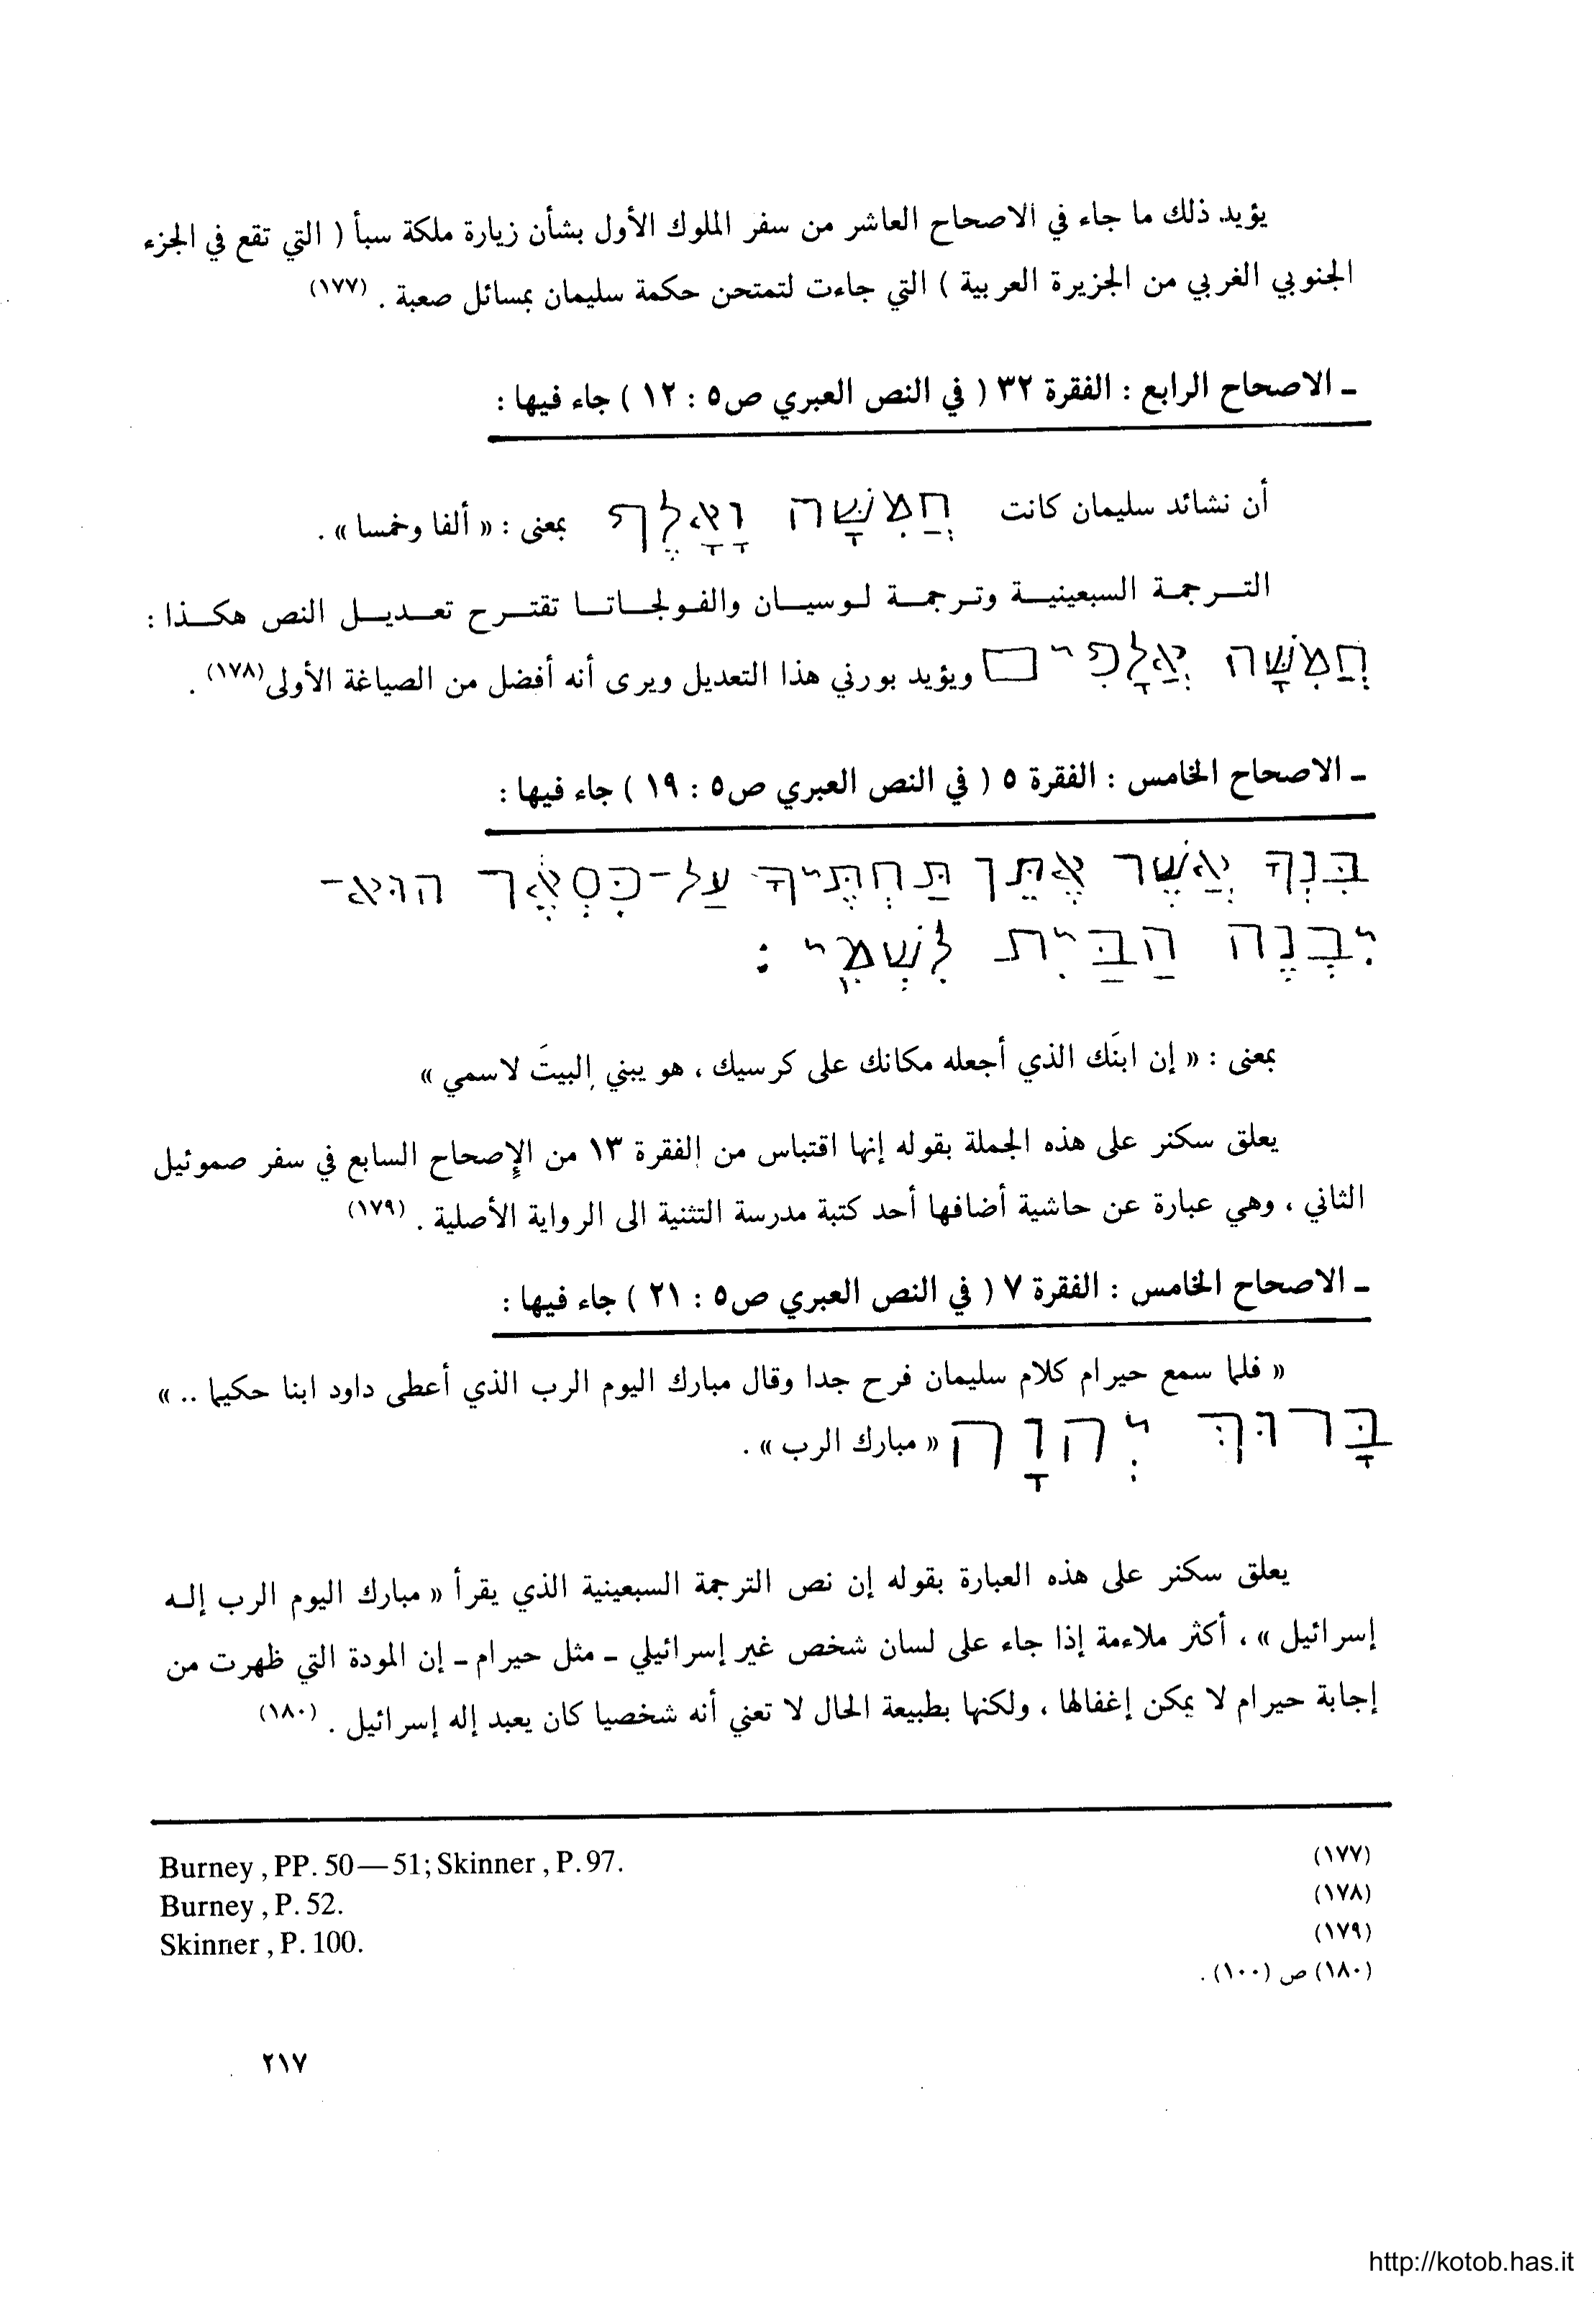 يؤيد ذلك ما جاء في الاصحاح العاشر من سفر الملوك الأول بشأن زيارة ملكة سبأ ( التي تقع في الجزء
الجنوبي الغربي من الجزيرة العربية ) التي جاءت لتمتحن حكمة سليمان بمسائل صعبة . (١٧٧)
ـ الاصحاح الرابع : الفقرة ٣٢ ( في النص العبري ص٥ : ١٢ ) جاء فيها :
أن نشائد سليمان كانت חֲמִשָּׁה וָאָלֶף بمعنى : « ألفا وخمسا » .
الترجمة السبعينية وترجمة لوسيان والفولجاتا تقترح تعديل النص هكذا :
חֲמִשָּׁה אֲלָפִים ويؤيد بورني هذا التعديل ويرى أنه أفضل من الصياغة الأولى(١٧٨) .
ـ الاصحاح الخامس : الفقرة ٥ ( في النص العبري ص٥ : ١٩ ) جاء فيها :
בִּנְךָ אֲשֶׁר אֶתֵּן תַּחְתֶּיךָ עַל-כִּסְאֶךָ הוּא-
יִבְנֶה הַבַּיִת לִשְׁמִי :
بمعنى : « إن ابنَك الذي أجعله مكانك على كرسيك ، هو يبني البيتَ لاسمي »
يعلق سكنر على هذه الجملة بقوله إنها اقتباس من الفقرة ١٣ من الإصحاح السابع في سفر صموئيل
الثاني ، وهي عبارة عن حاشية أضافها أحد كتبة مدرسة التثنية الى الرواية الأصلية . (١٧٩)
ـ الاصحاح الخامس : الفقرة ٧ ( في النص العبري ص٥ : ٢١ ) جاء فيها :
« فلما سمع حيرام كلام سليمان فرح جدا وقال مبارك اليوم الرب الذي أعطى داود ابنا حكيما .. »
בָּרוּךְ יְהוָה « مبارك الرب » .
يعلق سكنر على هذه العبارة بقوله إن نص الترجمة السبعينية الذي يقرأ « مبارك اليوم الرب إله
إسرائيل » ، أكثر ملاءمة إذا جاء على لسان شخص غير إسرائيلي ـ مثل حيرام ـ إن المودة التي ظهرت من
إجابة حيرام لا يمكن إغفالها ، ولكنها بطبيعة الحال لا تعني أنه شخصيا كان يعبد إله إسرائيل . (١٨٠)
(١٧٧) Burney , PP. 50—51; Skinner , P. 97.
(١٧٨) Burney , P. 52.
(١٧٩) Skinner , P. 100.
(١٨٠) ص (١٠٠) .
٢١٧
http://kotob.has.it